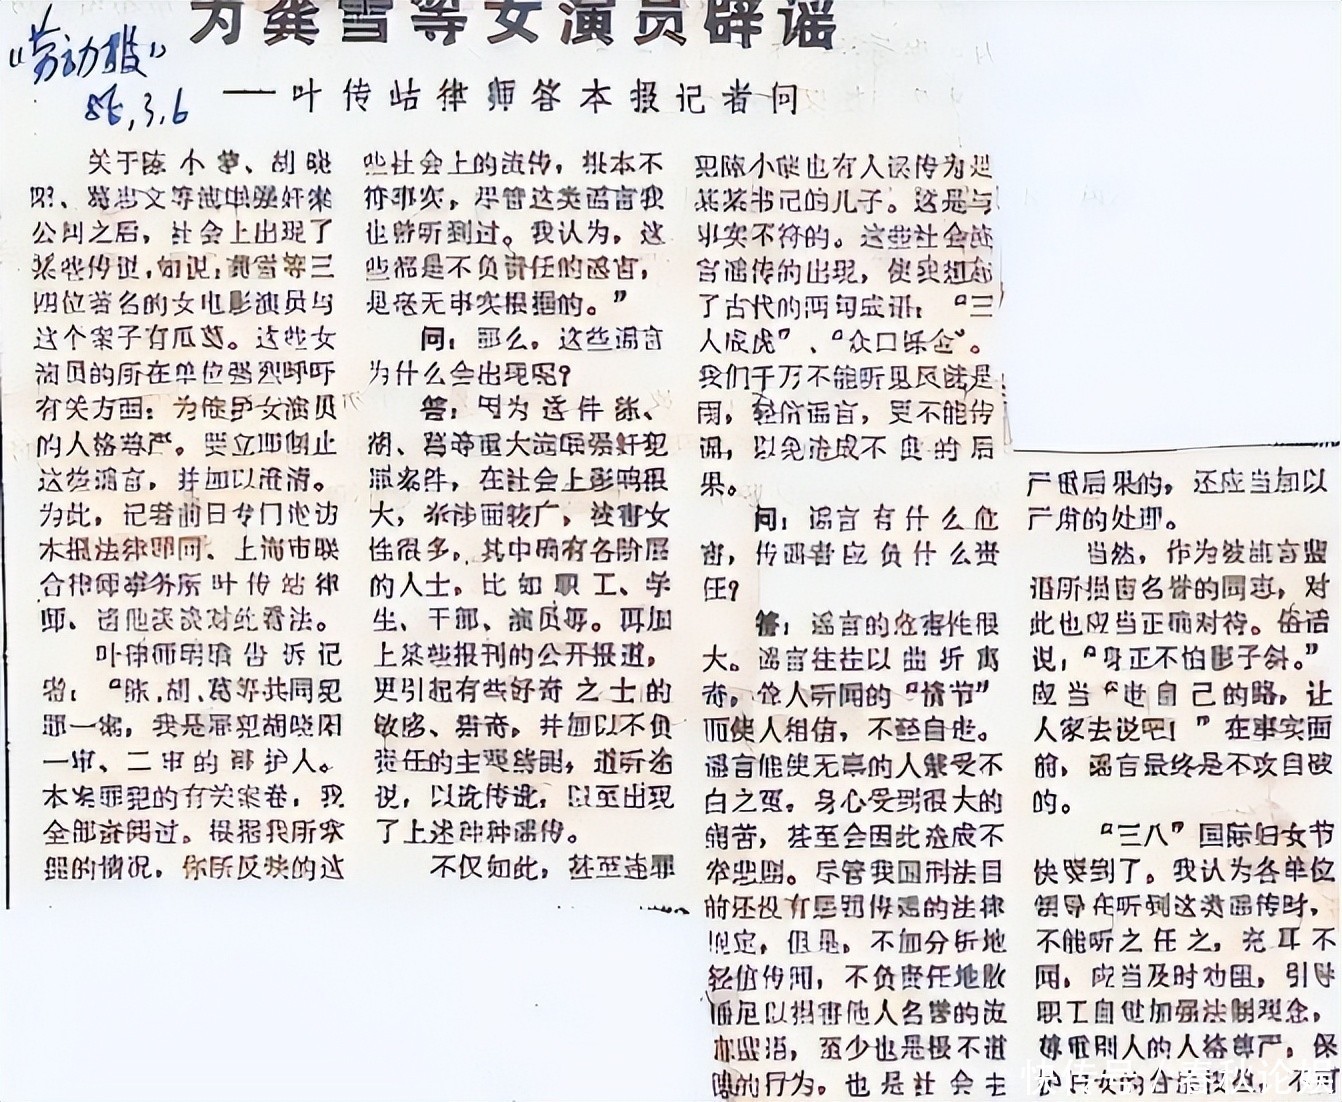 为龚雪等女演员辟谣
"劳动报"
86.3.6
——叶传岵律师答本报记者问
关于陈小蒙、胡晓
阳、葛志文等流氓强奸案
公判之后，社会上出现了
某些传说，如说，龚雪等三
四位著名的女电影演员与
这个案子有瓜葛。这些女
演员的所在单位强烈呼吁
有关方面：为维护女演员
的人格尊严，要立即制止
这些谣言，并加以澄清。
为此，记者前日专门走访
本报法律顾问、上海市联
合律师事务所叶传岵律
师，请他谈谈对此看法。
叶律师明确告诉记
者："陈、胡、葛等共同犯
罪一案，我是罪犯胡晓阳
一审、二审的辩护人。
本案罪犯的有关案卷，我
全部查阅过。根据我所掌
握的情况，你所反映的这
些社会上的流传，根本不
符事实，尽管这类谣言我
也曾听到过。我认为，这
些都是不负责任的谣言，
是毫无事实根据的。"
问：那么，这些谣言
为什么会出现呢？
答：因为这件陈、
胡、葛等重大流氓强奸犯
罪案件，在社会上影响很
大，牵涉面较广，被害女
性很多，其中确有各阶层
的人士，比如职工、学
生、干部、演员等。再加
上某些报刊的公开报道，
更引起有些好奇之士的
敏感、猎奇，并加以不负
责任的主观臆测，道听途
说，以讹传讹，以至出现
了上述种种谣传。
不仅如此，甚至连罪
犯陈小蒙也有人误传为是
某某书记的儿子。这是与
事实不符的。这些社会流
言谣传的出现，使我想起
了古代的两句成语："三
人成虎"、"众口铄金"。
我们千万不能听见风就是
雨，轻信谣言，更不能传
谣，以免造成不良的后
果。
问：谣言有什么危
害，传谣者应负什么责
任？
答：谣言的危害性很
大。谣言往往以曲折离
奇，耸人听闻的"情节"
而使人相信，不胫自走。
谣言能使无辜的人蒙受不
白之冤，身心受到很大的
痛苦，甚至会因此造成不
幸悲剧。尽管我国刑法目
前还没有惩罚传谣的法律
规定，但是，不加分析地
轻信传闻，不负责任地散
播足以损害他人名誉的流
言蜚语，至少也是极不道
德的行为。也是社会主
严重后果的，还应当加以
严肃的处理。
当然，作为被流言蜚
语所损害名誉的同志，对
此也应当正确对待。俗话
说，"身正不怕影子斜。"
应当"走自己的路，让
人家去说吧！"在事实面
前，谣言最终是不攻自破
的。
"三八"国际妇女节
快要到了。我认为各单位
领导在听到这类谣传时，
不能听之任之，充耳不
闻，应当及时劝阻，引导
职工自觉加强法制观念，
尊重别人的人格尊严，保
护妇女的合法权益，不可
快传号 / 春秋论坛